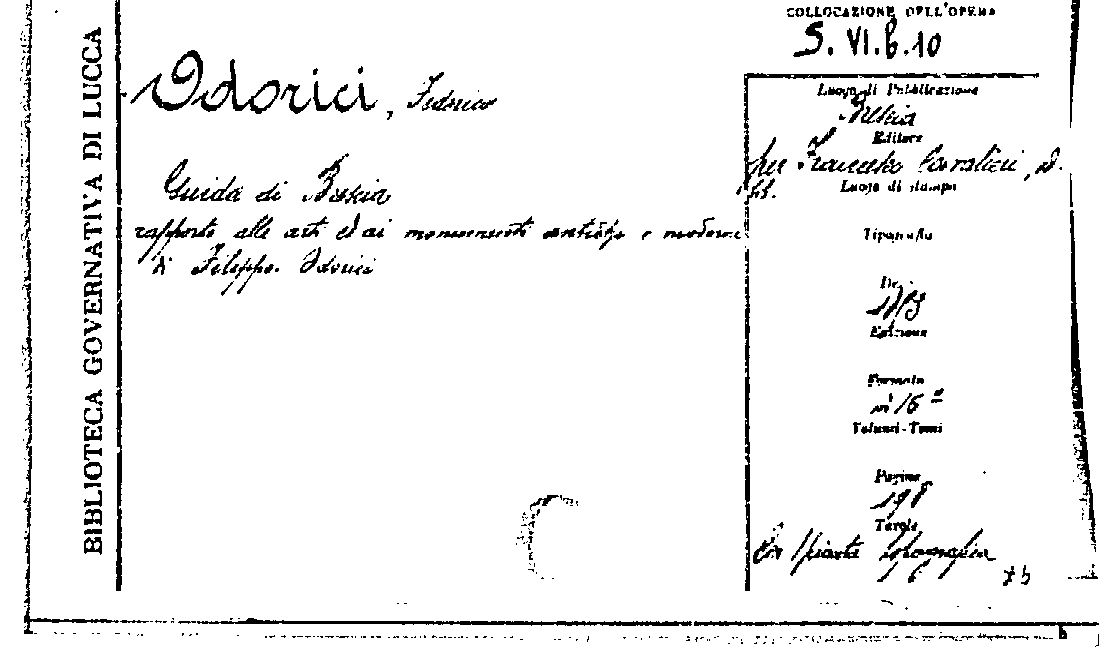 BIBLIOTECA GOVERNATIVA DI LUCCA
COLLOCAZIONE DELL'OPERA
S. VI. b. 10
Odorici, Federico
Guida di Brescia
rapporto alle arti ed ai monumenti antichi e moderni
di Filippo Odorici
Luogo di Pubblicazione
Brescia
Editore
per Francesco Cavalieri,
Luogo di stampa
Tipografia
Edizione
Formato
in 16º
Volumi-Tomi
Pagine
198
Tavole
Con pianta topografica